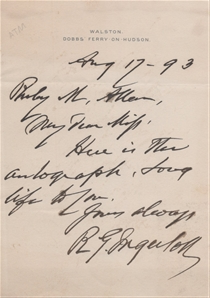 WALSTON,
DOBBS FERRY-ON-HUDSON.
Aug 17-93
Ruby M. Allen,
My Dear Miss,
Here is the
autograph, long
life to you.
Yours always
R G Ingersoll